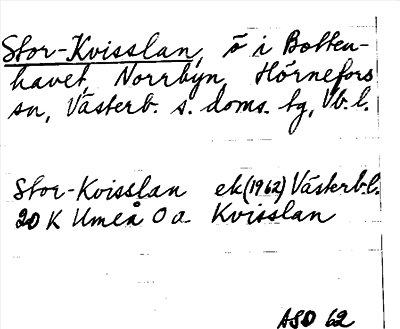 Stor-Kvisslan, ö i Botten-
havet, Norrbyn, Hörnefors
sn, Västerb. s. doms. tg, Vb. l.
Stor-Kvisslan ek (1962) Västerb.l.
20 K Umeå Oa Kvisslan
ASD 62